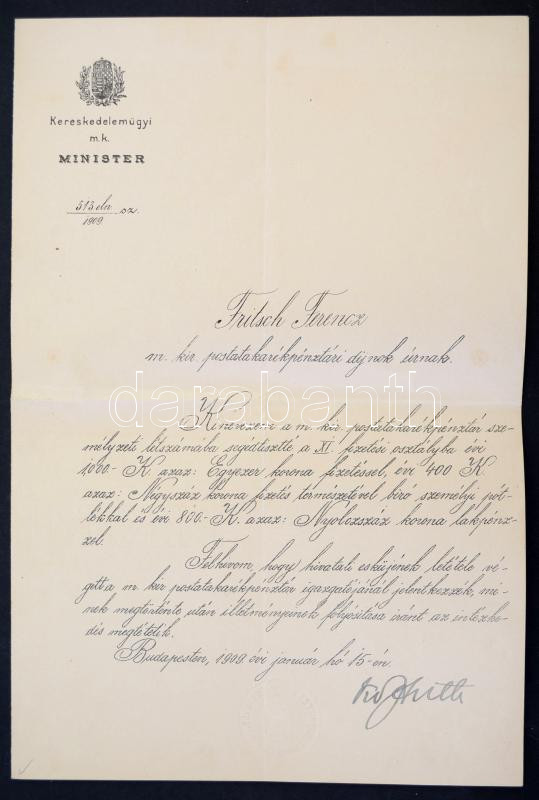 Kereskedelemügyi
m.k.
MINISTER
513 eln
1909. sz.
Fritsch Ferencz
m. kir. postatakarékpénztári dijnok úrnak.
darabanth
Kinevezem a m. kir. postatakarékpénztár sze-
mélyzeti létszámába segédtisztté a XI. fizetési osztályba évi
1000.- K. azaz: Egyezer korona fizetéssel, évi 400 K
azaz: Négyszáz korona fizetés természetével biró személyi pót-
lékkal és évi 800.- K. azaz: Nyolczszáz korona lakpénz-
zel.
Felhivom, hogy hivatali esküjének letétele vé-
gett a m. kir postatakarékpénztár igazgatójánál jelentkezzék, mi-
nek megtörténte után illetményeinek folyósitása iránt az intézke-
dés megtétetik.
Budapesten, 1909 évi január hó 15-én.